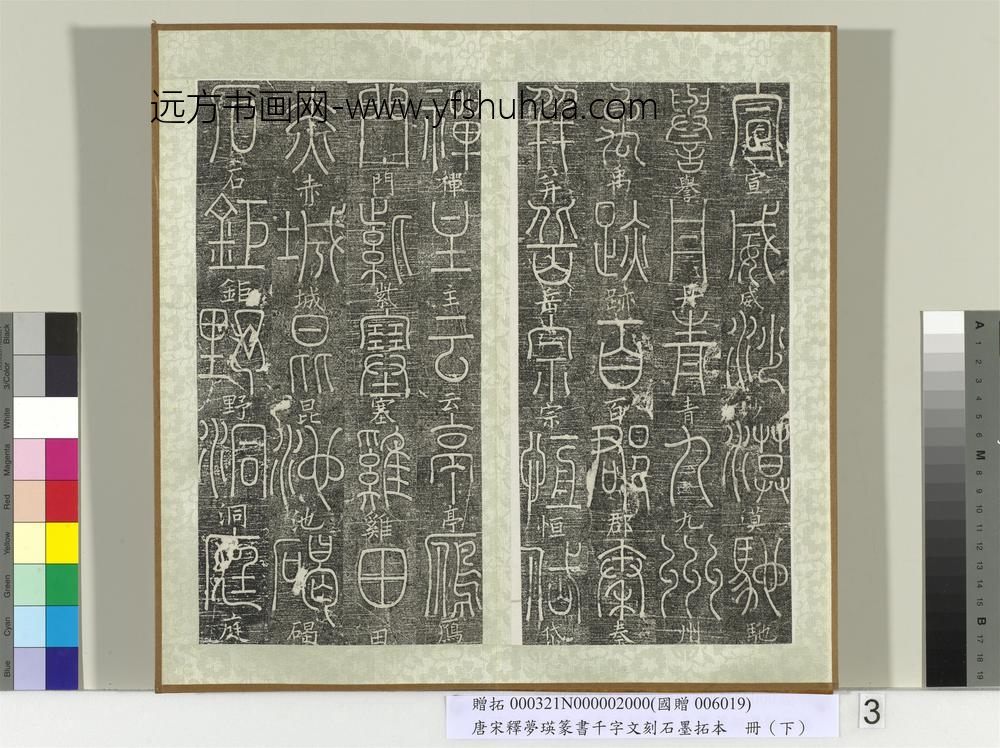 远方书画网-www.yfshuhua.com
宣威沙漠馳
譽丹青九州
禹跡百郡秦
并岳宗恒岱
禪主云亭鴈
門紫塞雞田
赤城昆池碣
石鉅野洞庭
贈拓 000321N000002000(國贈 006019)
唐宋釋夢瑛篆書千字文刻石墨拓本 冊（下）
3
Black
3/Color
White
Magenta
Red
Yellow
Green
Cyan
Blue
A
1
2
3
4
5
6
M
8
9
10
11
12
13
14
15
B
17
18
19